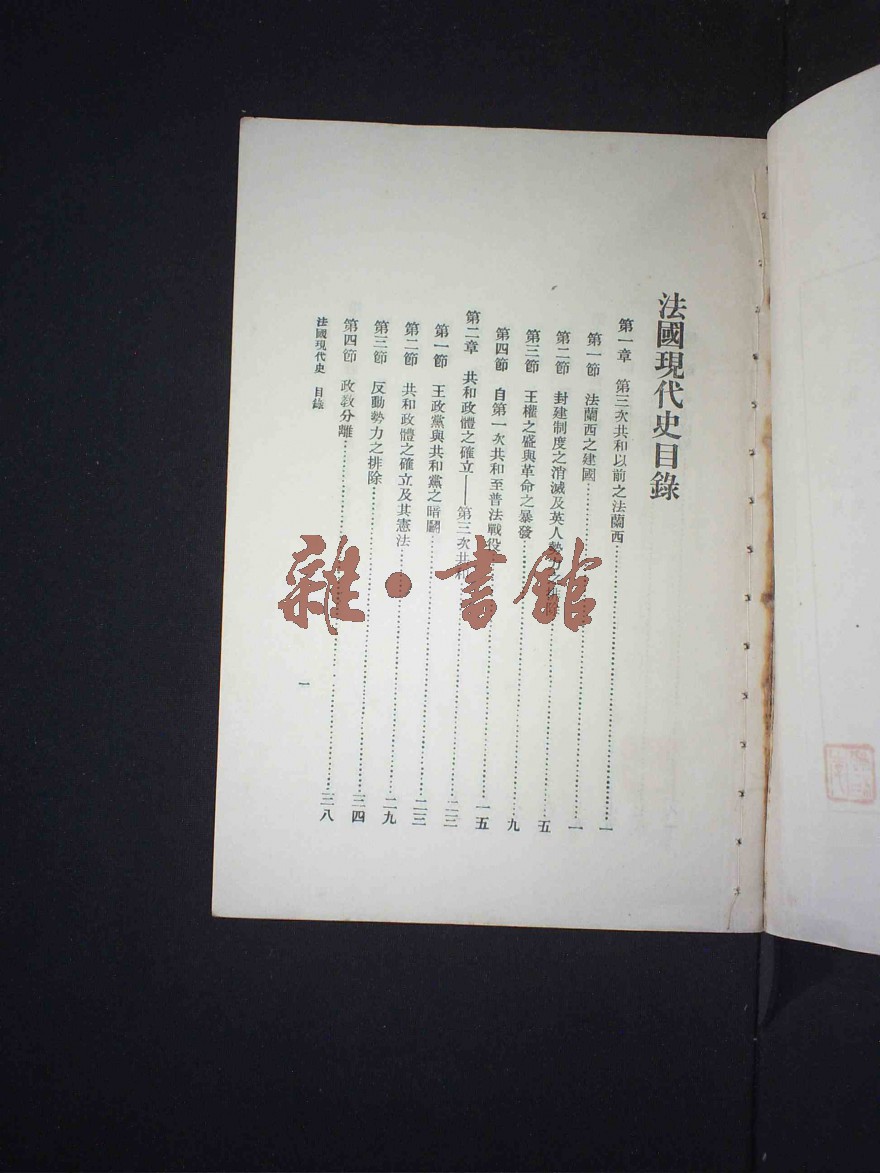 法國現代史目錄
第一章 第三次共和以前之法蘭西……一
第一節 法蘭西之建國……一
第二節 封建制度之消滅及英人勢……五
第三節 王權之盛與革命之暴發……九
第四節 自第一次共和至普法戰役……一五
第二章 共和政體之確立——第三次共和……二三
第一節 王政黨與共和黨之暗鬭……二三
第二節 共和政體之確立及其憲法……二九
第三節 反動勢力之排除……三四
第四節 政教分離……三八
法國現代史 目錄
一
雜·書館